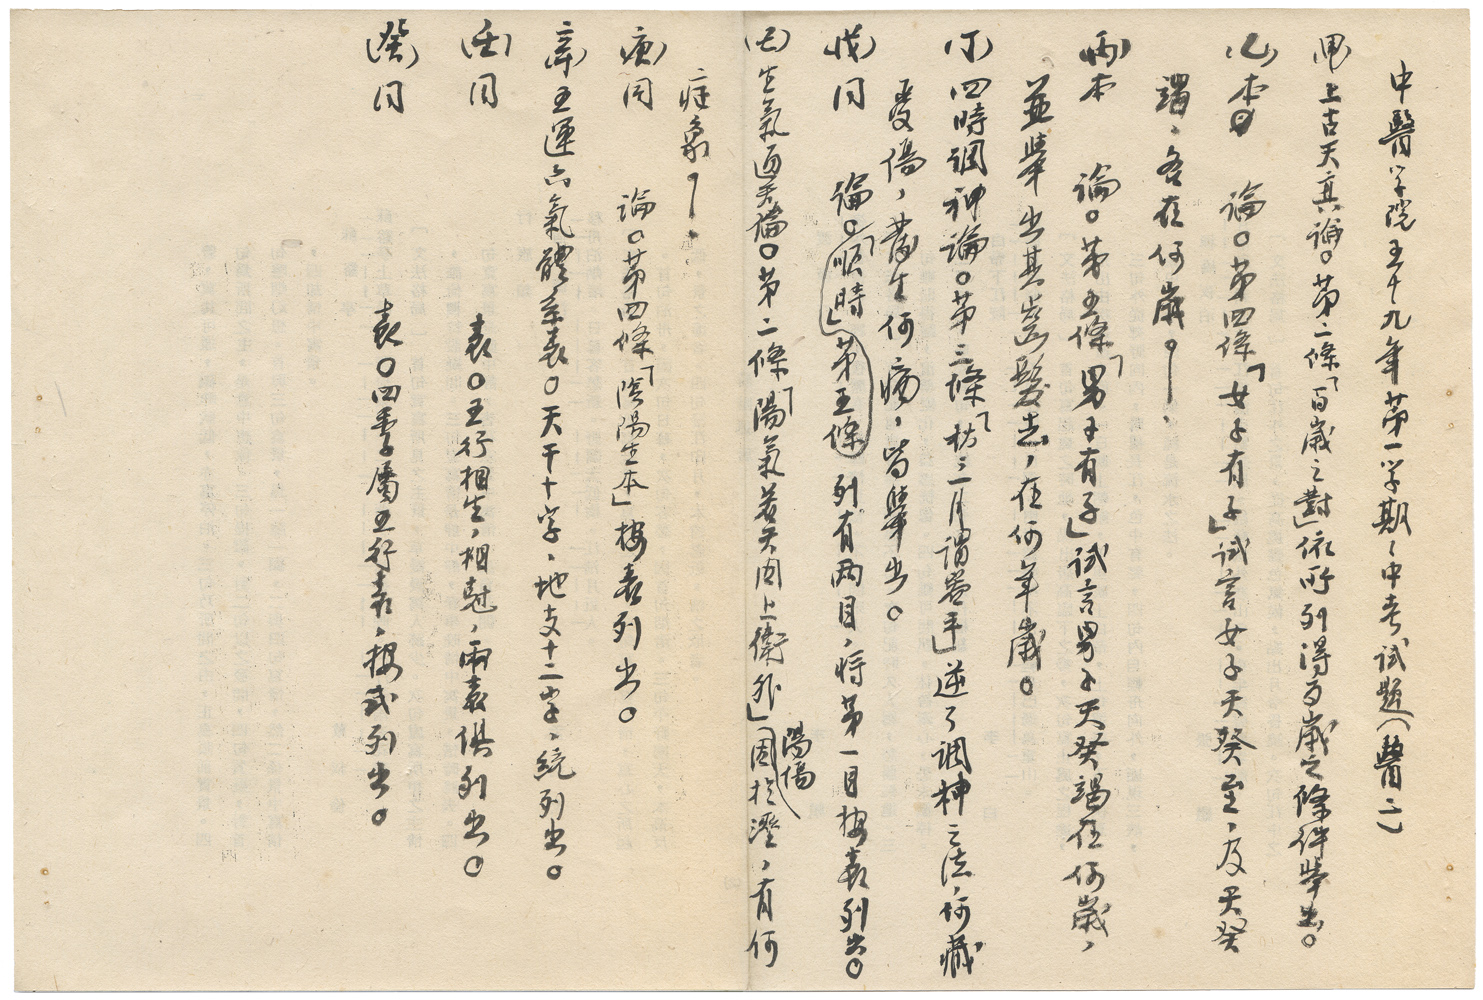 中醫学院五十九年第一学期〻中考試題(醫二)
(甲)上古天真論。第二條「百歲之對」依所列得百歲之條件舉出。
(乙)本 論。第四條「女子有子」試言女子天癸至,及天癸
竭,各在何歲。
(丙)本 論。第五條「男子有子」試言男子天癸竭在何歲,
並舉出其齒髮去,在何年歲。
(丁)四時調神論。第三條「春三月謂
」逆了調神之法,何藏
受傷,發生何病,皆舉出。
(戊)同 論。「順時」第五條列有兩目,將第一目按表列出。
(己)生氣通天論。第二條「陽氣若天因上衛外」(因於溼,有何
陽傷
症象。
(庚)同 論。第四條「陰陽生本」按表列出。
(辛)五運六氣體系表。天干十字,地支十二字,統列出。
(壬)同 表。五行相生,相尅,兩表俱列出。
(癸)同 表。四季屬五行表,按式列出。